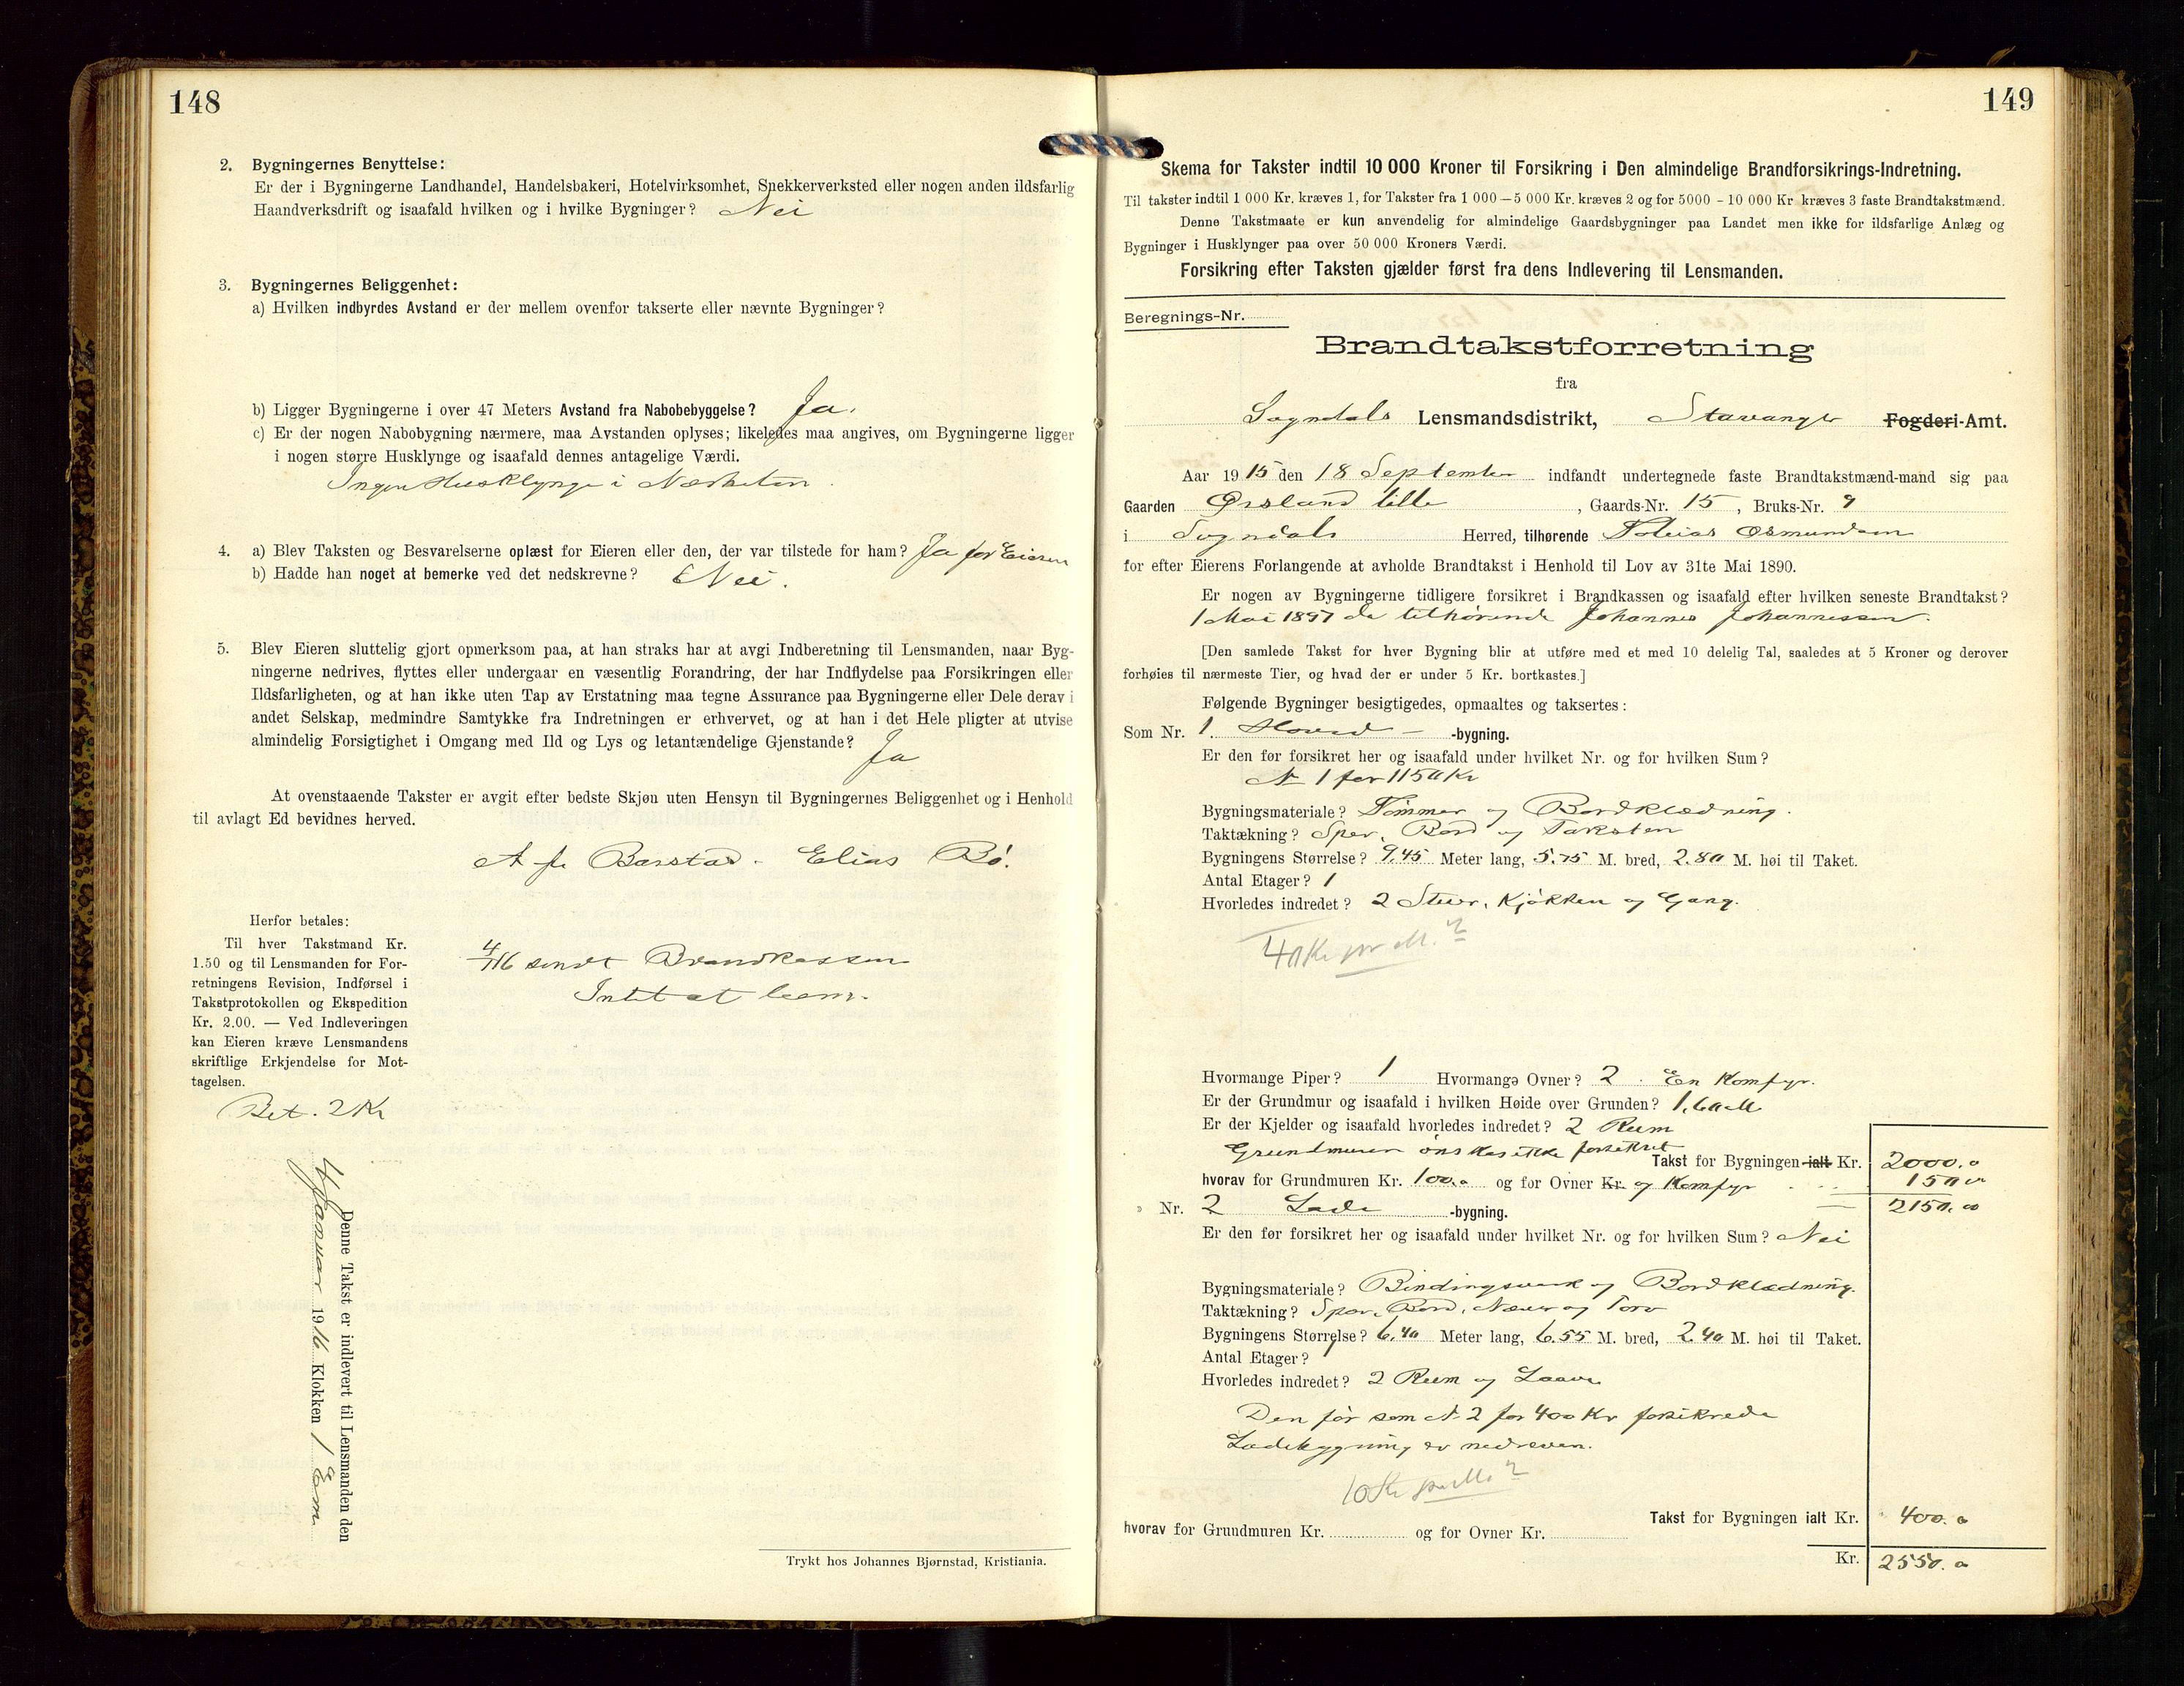 148
2. Bygningernes Benyttelse:
Er der i Bygningerne Landhandel, Handelsbakeri, Hotelvirksomhet, Snekkerverksted eller nogen anden ildsfarlig
Haandverksdrift og isaafald hvilken og i hvilke Bygninger? Nei
3. Bygningernes Beliggenhet:
a) Hvilken indbyrdes Avstand er der mellem ovenfor takserte eller nævnte Bygninger?
b) Ligger Bygningerne i over 47 Meters Avstand fra Nabobebyggelse? Ja.
c) Er der nogen Nabobygning nærmere, maa Avstanden oplyses; likeledes maa angives, om Bygningerne ligger
i nogen større Husklynge og isaafald dennes antagelige Værdi.
Ingen Husklynge i Nærheten.
4. a) Blev Taksten og Besvarelserne oplæst for Eieren eller den, der var tilstede for ham? Ja for Eieren
b) Hadde han noget at bemerke ved det nedskrevne? Nei.
5. Blev Eieren sluttelig gjort opmerksom paa, at han straks har at avgi Indberetning til Lensmanden, naar Byg-
ningerne nedrives, flyttes eller undergaar en væsentlig Forandring, der har Indflydelse paa Forsikringen eller
Ildsfarligheten, og at han ikke uten Tap av Erstatning maa tegne Assurance paa Bygningerne eller Dele derav i
andet Selskap, medmindre Samtykke fra Indretningen er erhvervet, og at han i det Hele pligter at utvise
almindelig Forsigtighet i Omgang med Ild og Lys og letantændelige Gjenstande? Ja
At ovenstaaende Takster er avgit efter bedste Skjøn uten Hensyn til Bygningernes Beliggenhet og i Henhold
til avlagt Ed bevidnes herved.
Barstad. Elias Bø.
Herfor betales:
Til hver Takstmand Kr.
1.50 og til Lensmanden for For-
retningens Revision, Indførsel i
Takstprotokollen og Ekspedition
Kr. 2.00. — Ved Indleveringen
kan Eieren kræve Lensmandens
skriftlige Erkjendelse for Mot-
tagelsen.
Bet. 2 Kr
4/1 16 sendt Brandkassen
Intet at bem.
Denne Takst er indlevert til Lensmanden den
4 Januar 1916 Klokken 1 Em.
Trykt hos Johannes Bjørnstad, Kristiania.
149
Skema for Takster indtil 10 000 Kroner til Forsikring i Den almindelige Brandforsikrings-Indretning.
Til takster indtil 1 000 Kr. kræves 1, for Takster fra 1 000 — 5 000 Kr. kræves 2 og for 5000 - 10 000 Kr kræves 3 faste Brandtakstmænd.
Denne Takstmaate er kun anvendelig for almindelige Gaardsbygninger paa Landet men ikke for ildsfarlige Anlæg og
Bygninger i Husklynger paa over 50 000 Kroners Værdi.
Forsikring efter Taksten gjælder først fra dens Indlevering til Lensmanden.
Beregnings-Nr.
Brandtakstforretning
fra
Sogndals Lensmandsdistrikt, Stavanger Fogderi-Amt.
Aar 1915 den 18 September indfandt undertegnede faste Brandtakstmænd-mand sig paa
Gaarden Ørsland lille, Gaards-Nr. 15, Bruks-Nr. 9
i Sogndals Herred, tilhørende Tobias Osmundsen
for efter Eierens Forlangende at avholde Brandtakst i Henhold til Lov av 31te Mai 1890.
Er nogen av Bygningerne tidligere forsikret i Brandkassen og isaafald efter hvilken seneste Brandtakst?
1 Mai 1897 da tilhørende Johannes Johannessen.
[Den samlede Takst for hver Bygning blir at utføre med et med 10 delelig Tal, saaledes at 5 Kroner og derover
forhøies til nærmeste Tier, og hvad der er under 5 Kr. bortkastes.]
Følgende Bygninger besigtigedes, opmaaltes og taksertes:
Som Nr. 1. Hoved-bygning.
Er den før forsikret her og isaafald under hvilket Nr. og for hvilken Sum?
N 1 for 1150 Kr
Bygningsmateriale? Tømmer og Bordklædning.
Taktækning? Sper, Bord og Taksten
Bygningens Størrelse? 9.45 Meter lang, 5.75 M. bred, 2.80 M. høi til Taket.
Antal Etager? 1
Hvorledes indredet? 2 Stuer, Kjøkken og Gang.
40 Kr pr M.²
Hvormange Piper? 1 Hvormange Ovner? 2. En Komfyr.
Er der Grundmur og isaafald i hvilken Høide over Grunden? 1,60 M
Er der Kjelder og isaafald hvorledes indredet? 2 Rum
Grundmuren ønskes ikke forsikret
Takst for Bygningen ialt Kr. 2000.00
hvorav for Grundmuren Kr. 100.00 og for Ovner Kr. og Komfyr 150 00
2150.00
» Nr. 2 Lade-bygning.
Er den før forsikret her og isaafald under hvilket Nr. og for hvilken Sum? Nei
Bygningsmateriale? Bindingsverk og Bordklædning.
Taktækning? Sper, Bord, Næver og Torv
Bygningens Størrelse? 6,40 Meter lang, 6.55 M. bred, 2.40 M. høi til Taket.
Antal Etager? 1
Hvorledes indredet? 2 Rum og Laave
Den før som N. 2 for 400 Kr forsikrede
Ladebygning er nedreven.
10 Kr pr M²
Takst for Bygningen ialt Kr. 400.00
hvorav for Grundmuren Kr. og for Ovner Kr.
Kr. 2550.00